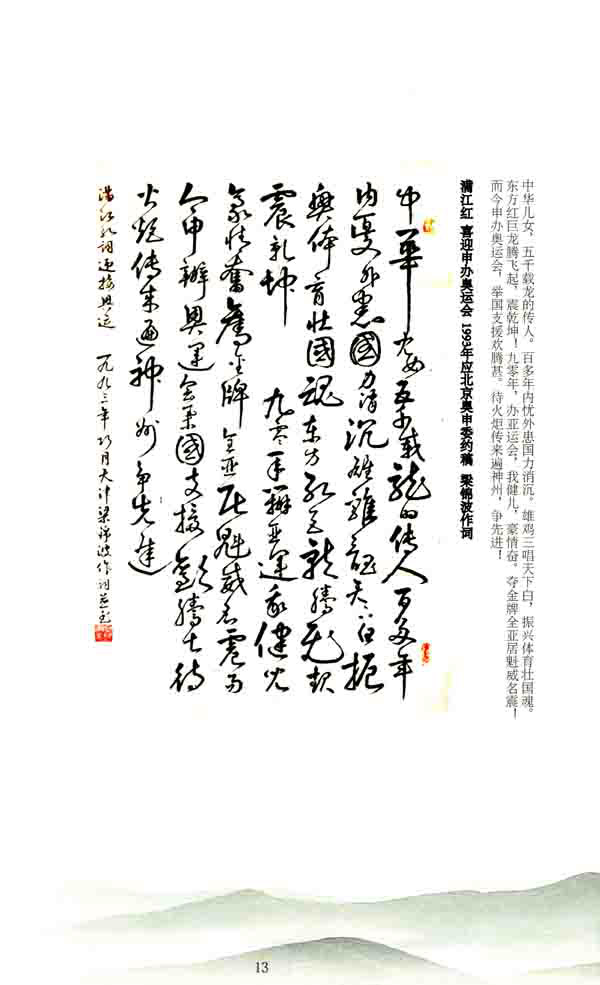 中华儿女，五千载龙的传人。百多年内忧外患国力消沉。雄鸡三唱天下白，振兴体育壮国魂。
东方红巨龙腾飞起，震乾坤！九零年，办亚运会，我健儿，豪情奋。夺金牌全亚居魁威名震！
而今申办奥运会，举国支援欢腾甚。待火炬传来遍神州，争先进！
满江红 喜迎申办奥运会 1993年应北京奥申委约稿 梁锦波作词
中華儿女五千载龍的传人百多年
内憂外患國力消沉雄雞三唱天下白振
興体育壮國魂东方红巨龍腾飞起
震乾坤 九零年辦亚運我健儿
豪情奮夺金牌全亚居魁威名震而
今申辦奥運会举國支援歡騰甚待
火炬传来遍神州争先进
满江红词迎接奥运 一九九三年 月 梁锦波作词并书
13